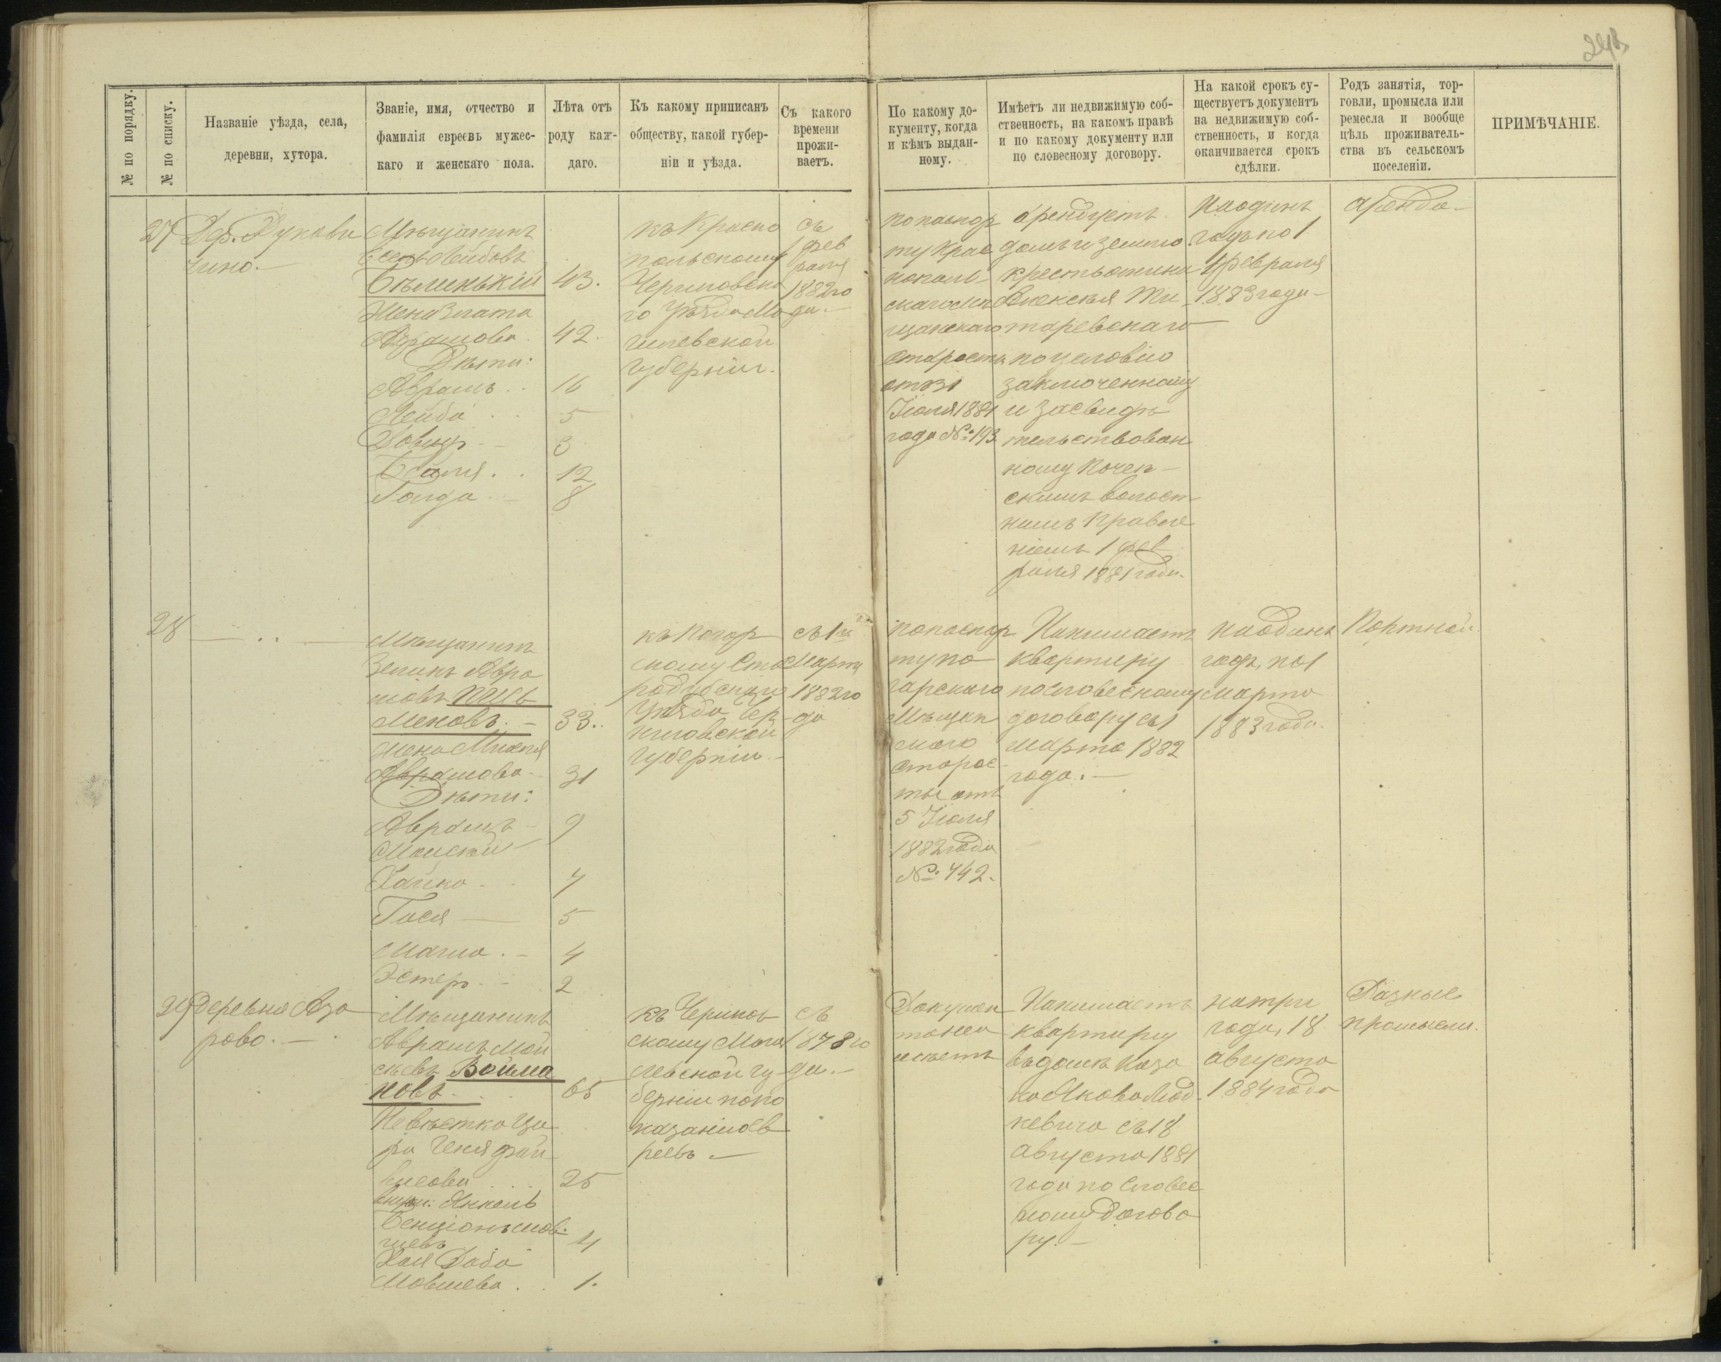 № по порядку.
№ по списку.
Названіе уѣзда, села,
деревни, хутора.
Званіе, имя, отчество и
фамилія евреевъ мужес-
каго и женскаго пола.
Лѣта отъ
роду каж-
даго.
Къ какому приписанъ
обществу, какой губер-
ніи и уѣзда.
Съ какого
времени
прожи-
ваетъ.
По какому до-
кументу, когда
и кѣмъ выдан-
ному.
Имѣетъ ли недвижимую соб-
ственность, на какомъ правѣ
и по какому документу или
по словесному договору.
На какой срокъ су-
ществуетъ документъ
на недвижимую соб-
ственность, и когда
оканчивается срокъ
сдѣлки.
Родъ занятія, тор-
говли, промысла или
ремесла и вообще
цѣль проживатель-
ства въ сельскомъ
поселеніи.
ПРИМѢЧАНІЕ.
27
Дер. Рукави
чино.
Мѣщанинъ
Лейбовъ
Бѣлинькій 43.
Жена Злата
Абрамова. 42.
Дѣти:
Абрамъ 16
Лейба 5
3
12
Голда 8
къ Красно
польскому
Чериковска
го уѣзда Мо
гилевской
губерніи.
съ
1 фев
раля
1882 го
да.
по паспор
ту Крас
нополь
скаго Мѣ
щанскаго
старосты
отъ 31
Іюля 1881
года № 193.
арендуетъ
домъ и землю
крестьянина
Алексѣя Ти
таревскаго
по условію
заключенному
и засвидѣ
тельствован
ному Почеп
скимъ волост
нымъ правле
ніемъ 1 фев
раля 1881 года.
на одинъ
годъ по 1
февраля
1883 года
аренда
28
Мѣщанинъ
Зеликъ Абра
мовъ
33.
Абрамова 31
Дѣти:
Абрамъ 9
Хайка 7
Гася 5
4
Эстеръ 2
къ Погар
скому Ста
родубскаго
уѣзда Чер
ниговской
губерніи
съ 1го
Марта
1882 го
да
по паспор
ту По
гарскаго
Мѣщан
скаго
старос
ты отъ
5 Іюля
1882 года
№ 742.
Нанимаетъ
квартиру
по словесному
договору съ 1
марта 1882
года.
на одинъ
годъ, по 1
марта
1883 года.
Портной
29
деревня Аза
рово.
Мѣщанинъ
Абрамъ Мой
сѣевъ Войма
новъ 65
Невѣстка
25
4
Мовшева 1.
къ Чериков
скому Моги
левской гу
берніи по по
казанію ев
реевъ
съ
1878 го
да.
Документ
та не и
мѣетъ
Нанимаетъ
квартиру
въ домѣ каза
ка Якова
съ 18
августа 1881
года по словес
ному догово
ру.
на три
года, 18
августа
1884 года
Разные
промыслы.